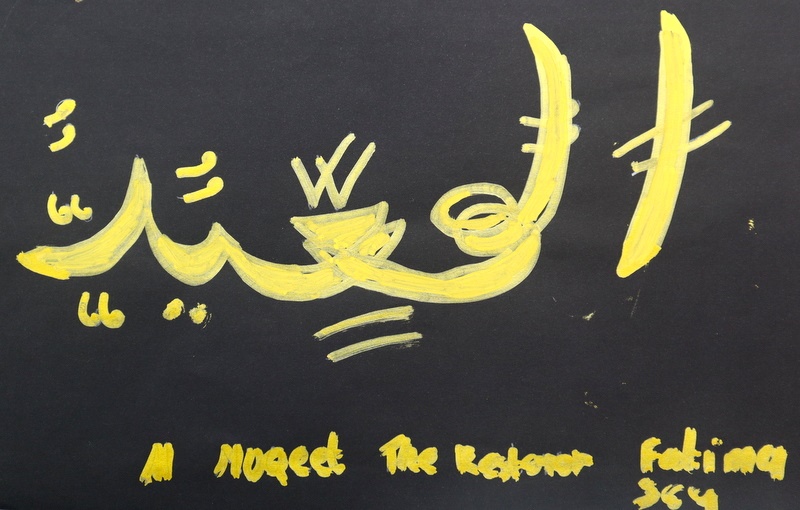 المعيد
Al MuQeet The Restorer Fatima